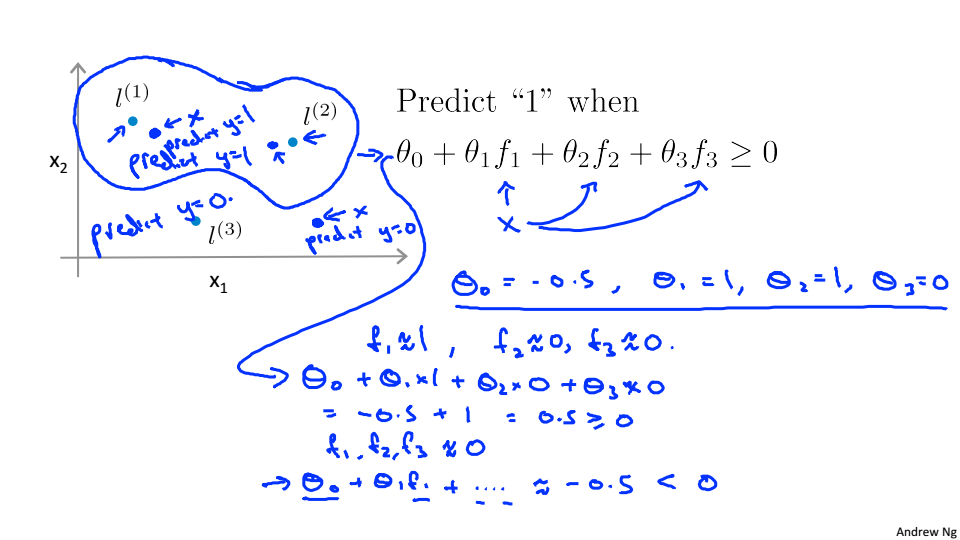 l^{(1)}
l^{(2)}
← x
predict y=1
predict y=1
x₂
predict y=0.
l^{(3)}
← x
predict y=0
x₁
Predict “1” when
θ₀ + θ₁f₁ + θ₂f₂ + θ₃f₃ ≥ 0
x
θ₀ = -0.5, θ₁ = 1, θ₂ = 1, θ₃ = 0
f₁ ≈ 1, f₂ ≈ 0, f₃ ≈ 0.
→ θ₀ + θ₁×1 + θ₂×0 + θ₃×0
= -0.5 + 1 = 0.5 ≥ 0
f₁, f₂, f₃ ≈ 0
→ θ₀ + θ₁f₁ + .... ≈ -0.5 < 0
Andrew Ng